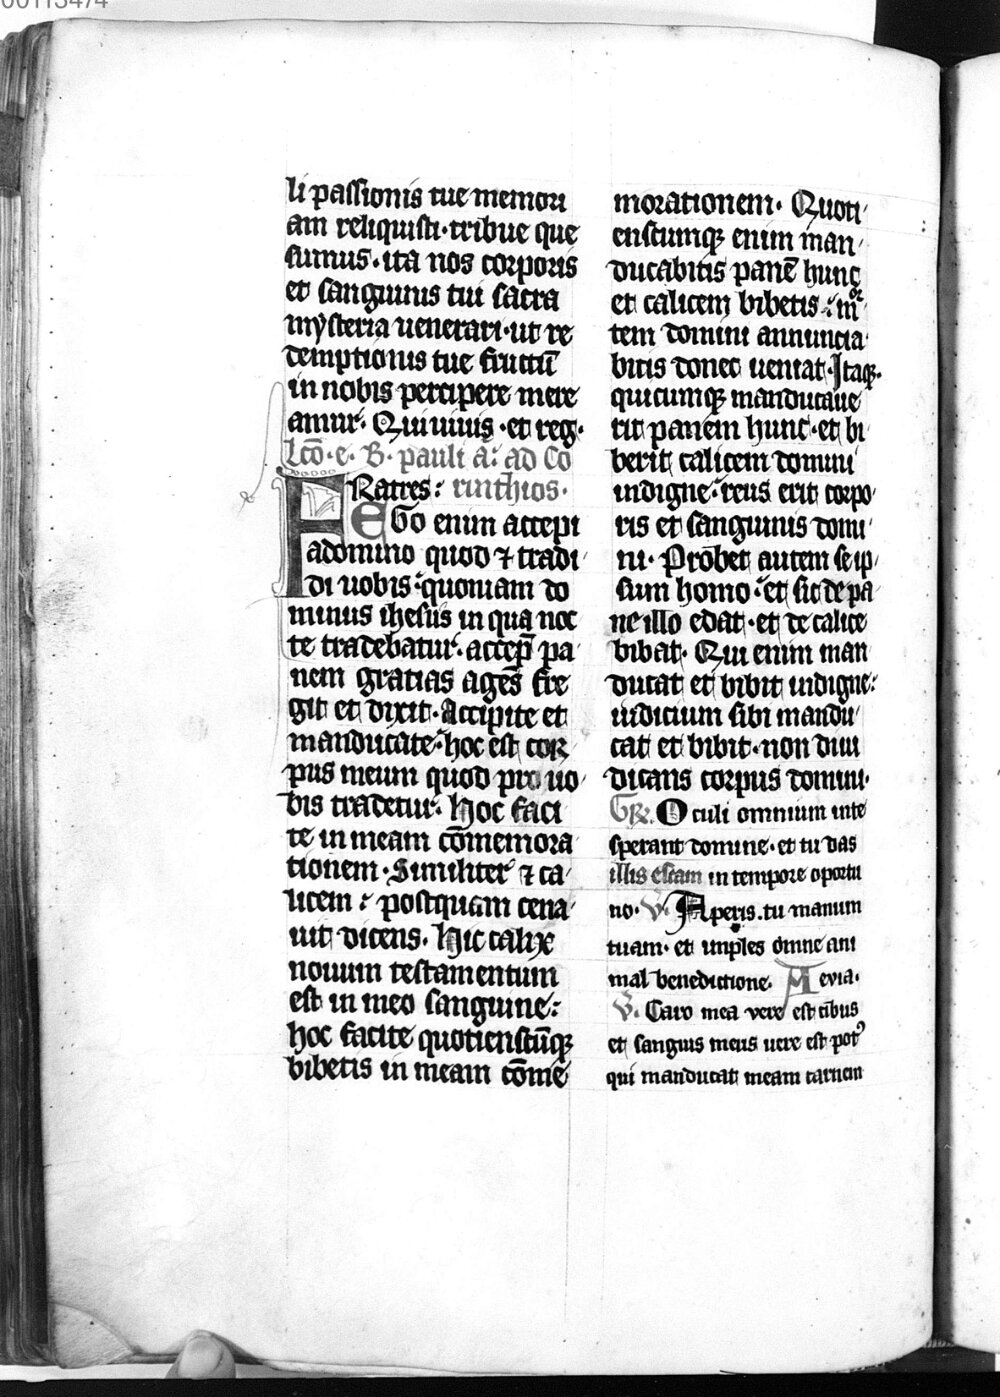 00113474
li passionis tue memori
am reliquisti·tribue que
sumus·ita nos corporis
et sanguinis tui sacra
mysteria uenerari·ut re
demptionis tue fructū
in nobis percipere mere
amur. Qui uiuis·et reg.
Lcō·e·B·pauli a: ad Co
FRatres: rinthios.
EGo enim accepi
a domino quod ⁊ tradi
di uobis: quoniam do
minus ihesus in qua noc
te tradebatur. accep̄ pa
nem gratias agēs fre
git et dixit. Accipite et
manducate: hoc est cor
pus meum quod pro uo
bis tradetur. Hoc faci
te in meam cōmemora
tionem. Similiter ⁊ ca
licem: postquam cena
uit dicens. Hic calix
nouum testamentum
est in meo sanguine:
hoc facite quotienscūqꝫ
bibetis in meam cōme
morationem. Quoti
enscumqꝫ enim man
ducabitis panē hunc
et calicem bibetis: mor
tem domini annuncia
bitis donec ueniat. Itaqꝫ.
quicumqꝫ manducaue
rit panem hunc·et bi
berit calicem domini
indigne: reus erit corpo
ris et sanguinis domi
ni. Probet autem se ip
sum homo: et sic de pa
ne illo edat·et de calice
bibat. Qui enim man
ducat et bibit indigne:
iudicium sibi mandu
cat et bibit·non diiu
dicans corpus domini.
GR. Oculi omnium inte
sperant domine·et tu das
illis escam in tempore oportu
no. V. Aperis.tu manum
tuam·et imples omne ani
mal benedictione. Aeuia.
V. Caro mea vere est cibus
et sanguis meus uere est pot᾽
qui manducat meam carnem